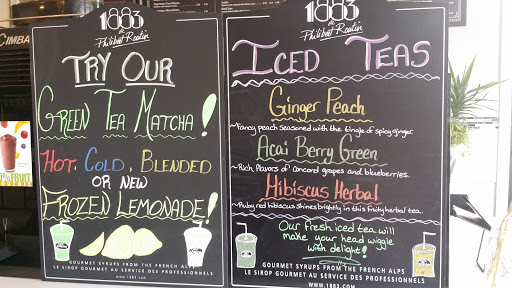 CIMBA
1883
de
Philibert Routin
TRY OUR
GREEN TEA MATCHA!
HOT, COLD, BLENDED
OR NEW
FROZEN LEMONADE!
GOURMET SYRUPS FROM THE FRENCH ALPS
LE SIROP GOURMET AU SERVICE DES PROFESSIONNELS
WWW.1883.COM
%FRUIT
1883
de
Philibert Routin
ICED TEAS
Ginger Peach
Fancy peach seasoned with the tingle of spicy ginger.
Acai Berry Green
Rich flavors of concord grapes and blueberries.
Hibiscus Herbal
Ruby red hibiscus shines brightly in this fruity herbal tea.
Our fresh iced tea will
make your head wiggle
with delight!
GOURMET SYRUPS FROM THE FRENCH ALPS
LE SIROP GOURMET AU SERVICE DES PROFESSIONNELS
WWW.1883.COM